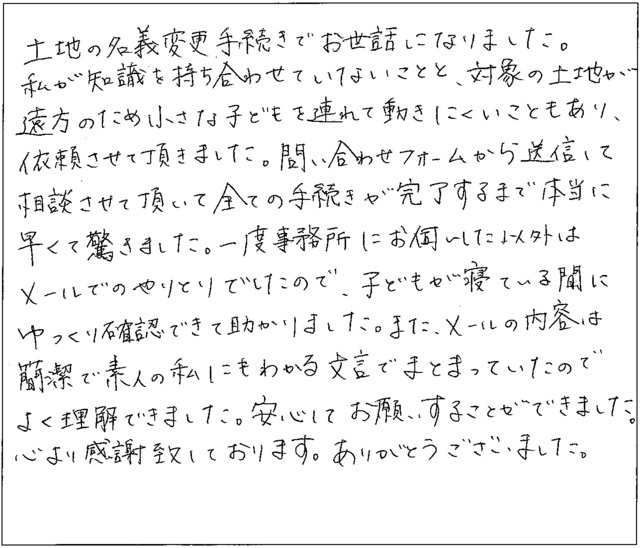 土地の名義変更手続きでお世話になりました。
私が知識を持ち合わせていないことと、対象の土地が
遠方のため小さな子どもを連れて動きにくいこともあり、
依頼させて頂きました。問い合わせフォームから送信して
相談させて頂いて全ての手続きが完了するまで本当に
早くて驚きました。一度事務所にお伺いした以外は
メールでのやりとりでしたので、子どもが寝ている間に
ゆっくり確認できて助かりました。また、メールの内容は
簡潔で素人の私にもわかる文言でまとまっていたので
よく理解できました。安心してお願いすることができました。
心より感謝致しております。ありがとうございました。